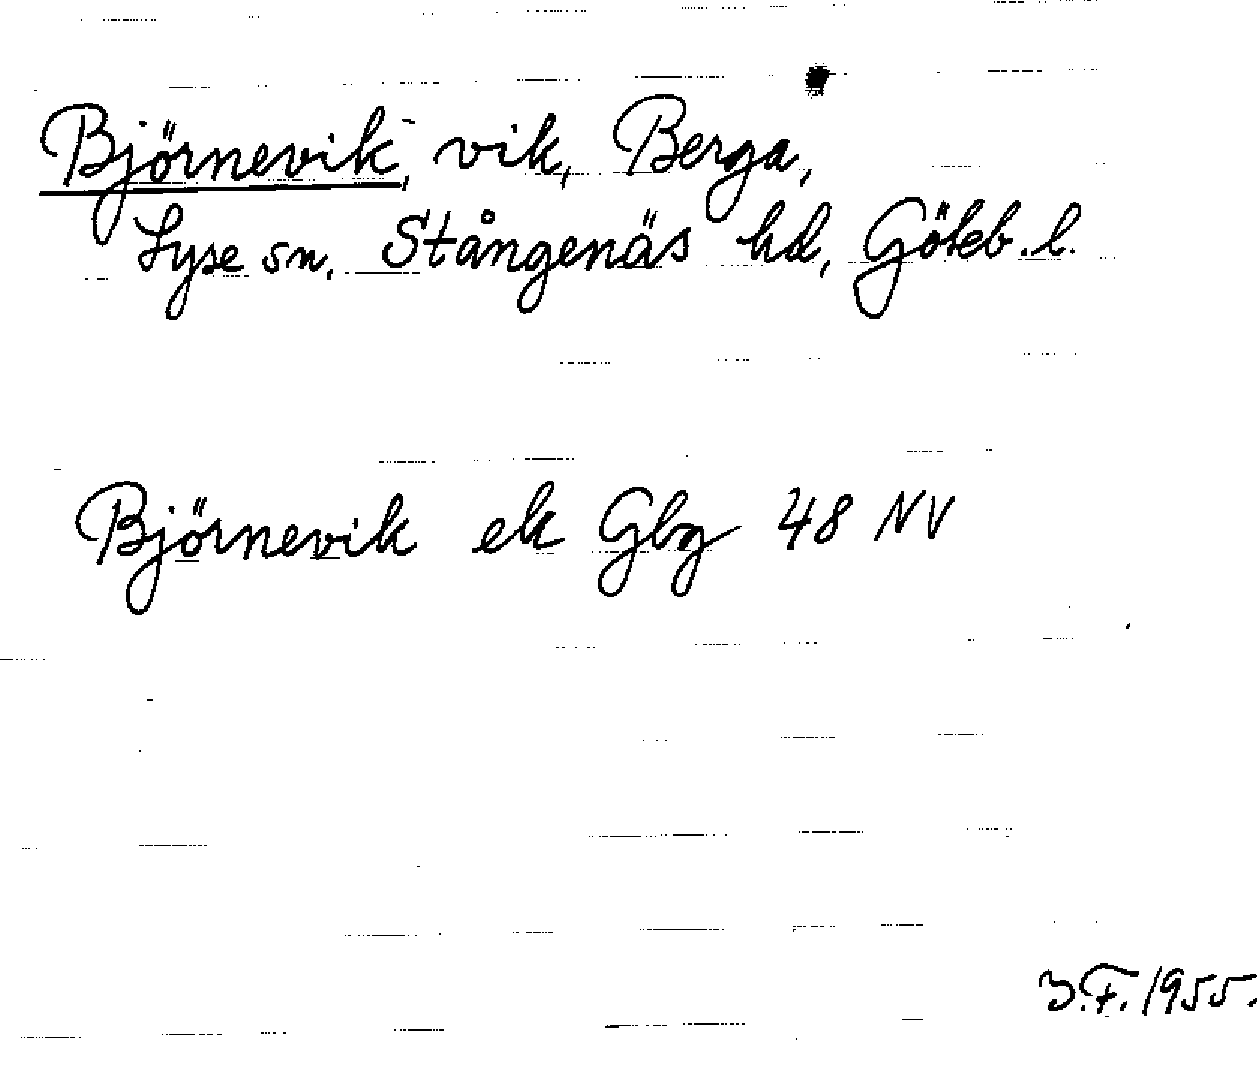 Björnevik, vik, Berga,
Lyse sn, Stångenäs hd, Göteb. l.
Björnevik ek Gbg 48 NV
B.F. 1955.